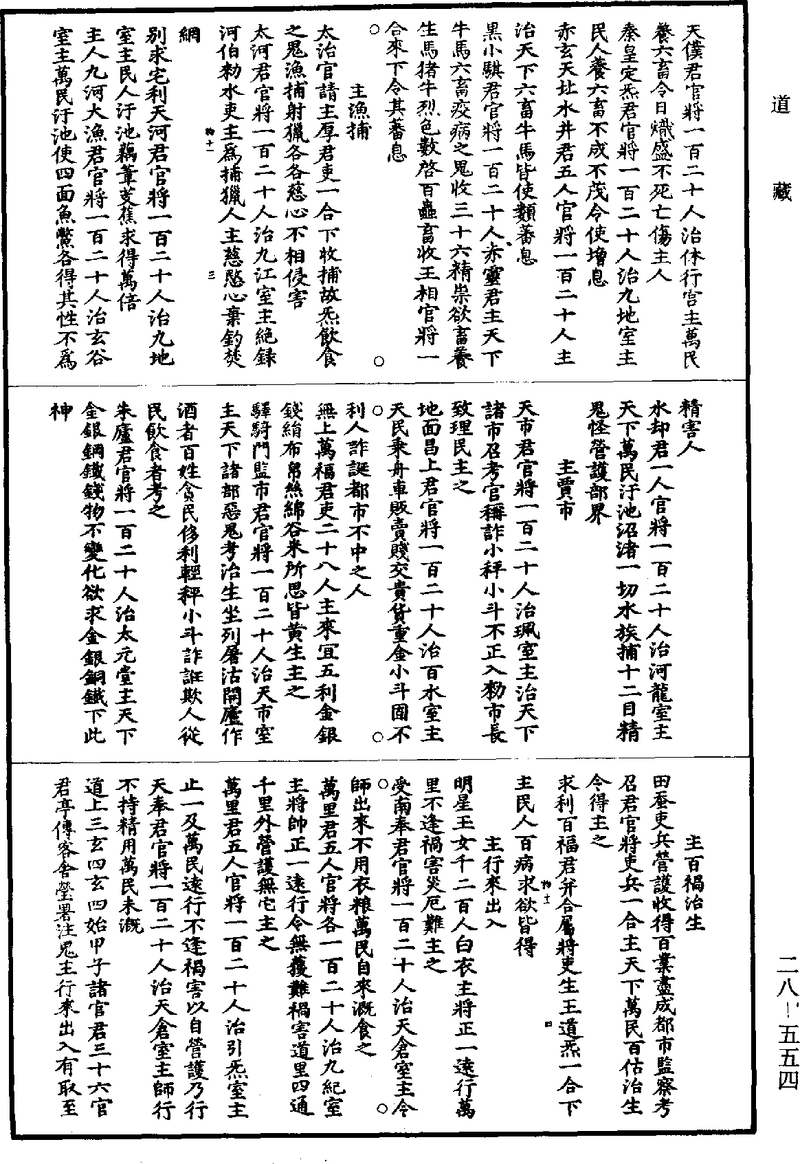 道藏
天僕君官將一百二十人治休行宫主萬民
養六畜令日熾盛不死亡傷主人
秦皇定炁君官將一百二十人治九地室主
民人養六畜不成不茂令使增息
赤玄天址水井君五人官將一百二十人主
治天下六畜牛馬皆使類蕃息
黑小騏君官將一百二十人赤靈君主天下
牛馬六畜疫病之鬼收三十六精祟欲畜養
生馬猪牛烈色數啓百蟲畜收王相官將一
合來下令其蕃息
主漁捕
太治官請主厚君吏一合下收捕故炁飲食
之鬼漁捕射獵各各慈心不相侵害
太河君官將一百二十人治九江室主絶録
河伯勑水吏主爲捕獵人主慈愍心棄釣焚
物十一
三
網
別求宅利天河君官將一百二十人治九地
室主民人汙池藕葦芰蕉求得萬倍
主人九河大漁君官將一百二十人治玄谷
室主萬民汙池使四面魚鱉各得其性不爲
精害人
水却君一人官將一百二十人治河龍室主
天下萬民汙池沼渚一切水族捕十二目精
鬼怪營護部界
主賈市
天市君官將一百二十人治珮室主治天下
諸市召考官稱詐小秤小斗不正入勑市長
致理民主之
地面昌上君官將一百二十人治百水室主
天民乘舟車販賣賤交貴貨重金小斗固不
利人詐誕都市不中之人
無上萬福君吏二十八人主來宜五利金銀
錢絹布帛絲綿谷米所思皆黄生主之
驛騎門監市君官將一百二十人治天市室
主天下諸部惡鬼考治生坐列屠沽開廬作
酒者百姓貪民侈利輕秤小斗詐誑欺人從
民飲食者考之
朱廬君官將一百二十人治太元堂主天下
金銀銅鐵錢物不變化欲求金銀銅鐵下此
神
主百禍治生
田蚕吏兵營護收得百業盡成都市監察考
召君官將吏兵一合主天下萬民百估治生
令得主之
求利百福君弁合屬將吏生王道炁一合下
物十一
四
主民人百病求欲皆得
主行來出入
明星玉女千二百人白衣主將正一遠行萬
里不逢禍害災厄難主之
受南奉君官將一百二十人治天倉室主令
師出來不用衣粮萬民自來溉食之
萬里君五人官將各一百二十人治九紀室
主將帥正一遠行令無獲難禍害道里四通
千里外營護無它主之
萬里君五人官將一百二十人治引炁室主
止一及萬民遠行不逢禍害以自營護乃行
天奉君官將一百二十人治天倉室主師行
不持精用萬民未溉
道上三玄四玄四始甲子諸官君三十六官
君亭傳客舍塋署注鬼主行來出入有取至
二八－五五四